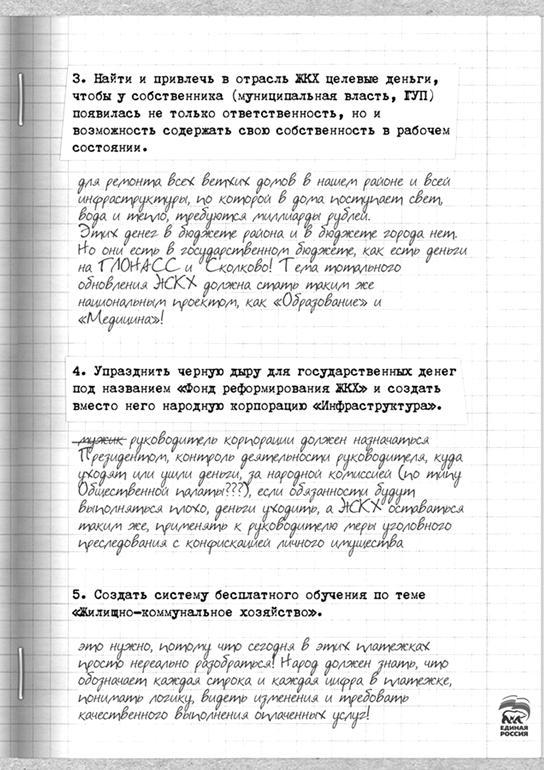 3. Найти и привлечь в отрасль ЖКХ целевые деньги,
чтобы у собственника (муниципальная власть, ГУП)
появилась не только ответственность, но и
возможность содержать свою собственность в рабочем
состоянии.
для ремонта всех ветхих домов в нашем районе и всей
инфраструктуры, по которой в дома поступает свет,
вода и тепло, требуются миллиарды рублей.
Этих денег в бюджете района и в бюджете города нет.
Но они есть в государственном бюджете, как есть деньги
на ГЛОНАСС и Сколково! Тема тотального
обновления ЖКХ должна стать таким же
национальным проектом, как «Образование» и
«Медицина»!
4. Упразднить черную дыру для государственных денег
под названием «Фонд реформирования ЖКХ» и создать
вместо него народную корпорацию «Инфраструктура».
мужик руководитель корпорации должен назначаться
Президентом, контроль деятельности руководителя, куда
уходят или ушли деньги, за народной комиссией (по типу
Общественной палаты???), если обязанности будут
выполняться плохо, деньги уходить, а ЖКХ оставаться
таким же, применять к руководителю меры уголовного
преследования с конфискацией личного имущества
5. Создать систему бесплатного обучения по теме
«Жилищно-коммунальное хозяйство».
это нужно, потому что сегодня в этих платежках
просто нереально разобраться! Народ должен знать, что
обозначает каждая строка и каждая цифра в платежке,
понимать логику, видеть изменения и требовать
качественного выполнения оплаченных услуг!
ЕДИНАЯ
РОССИЯ